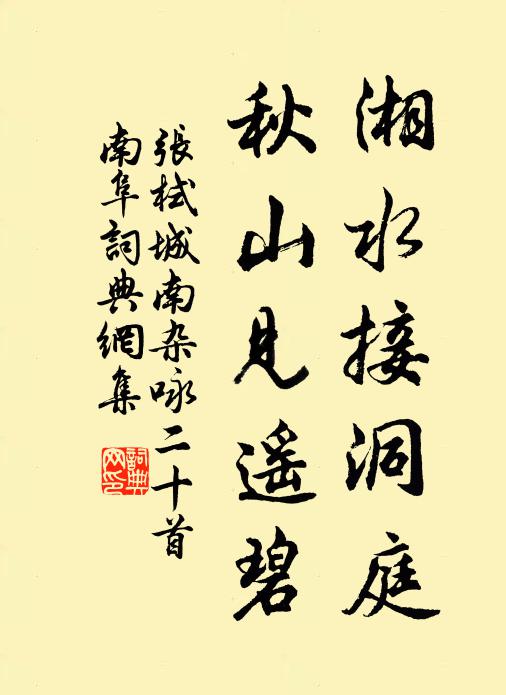 湘水接洞庭
秋山見遥碧
張栻城南杂咏二十首
南阜詞典網集
詞典网印